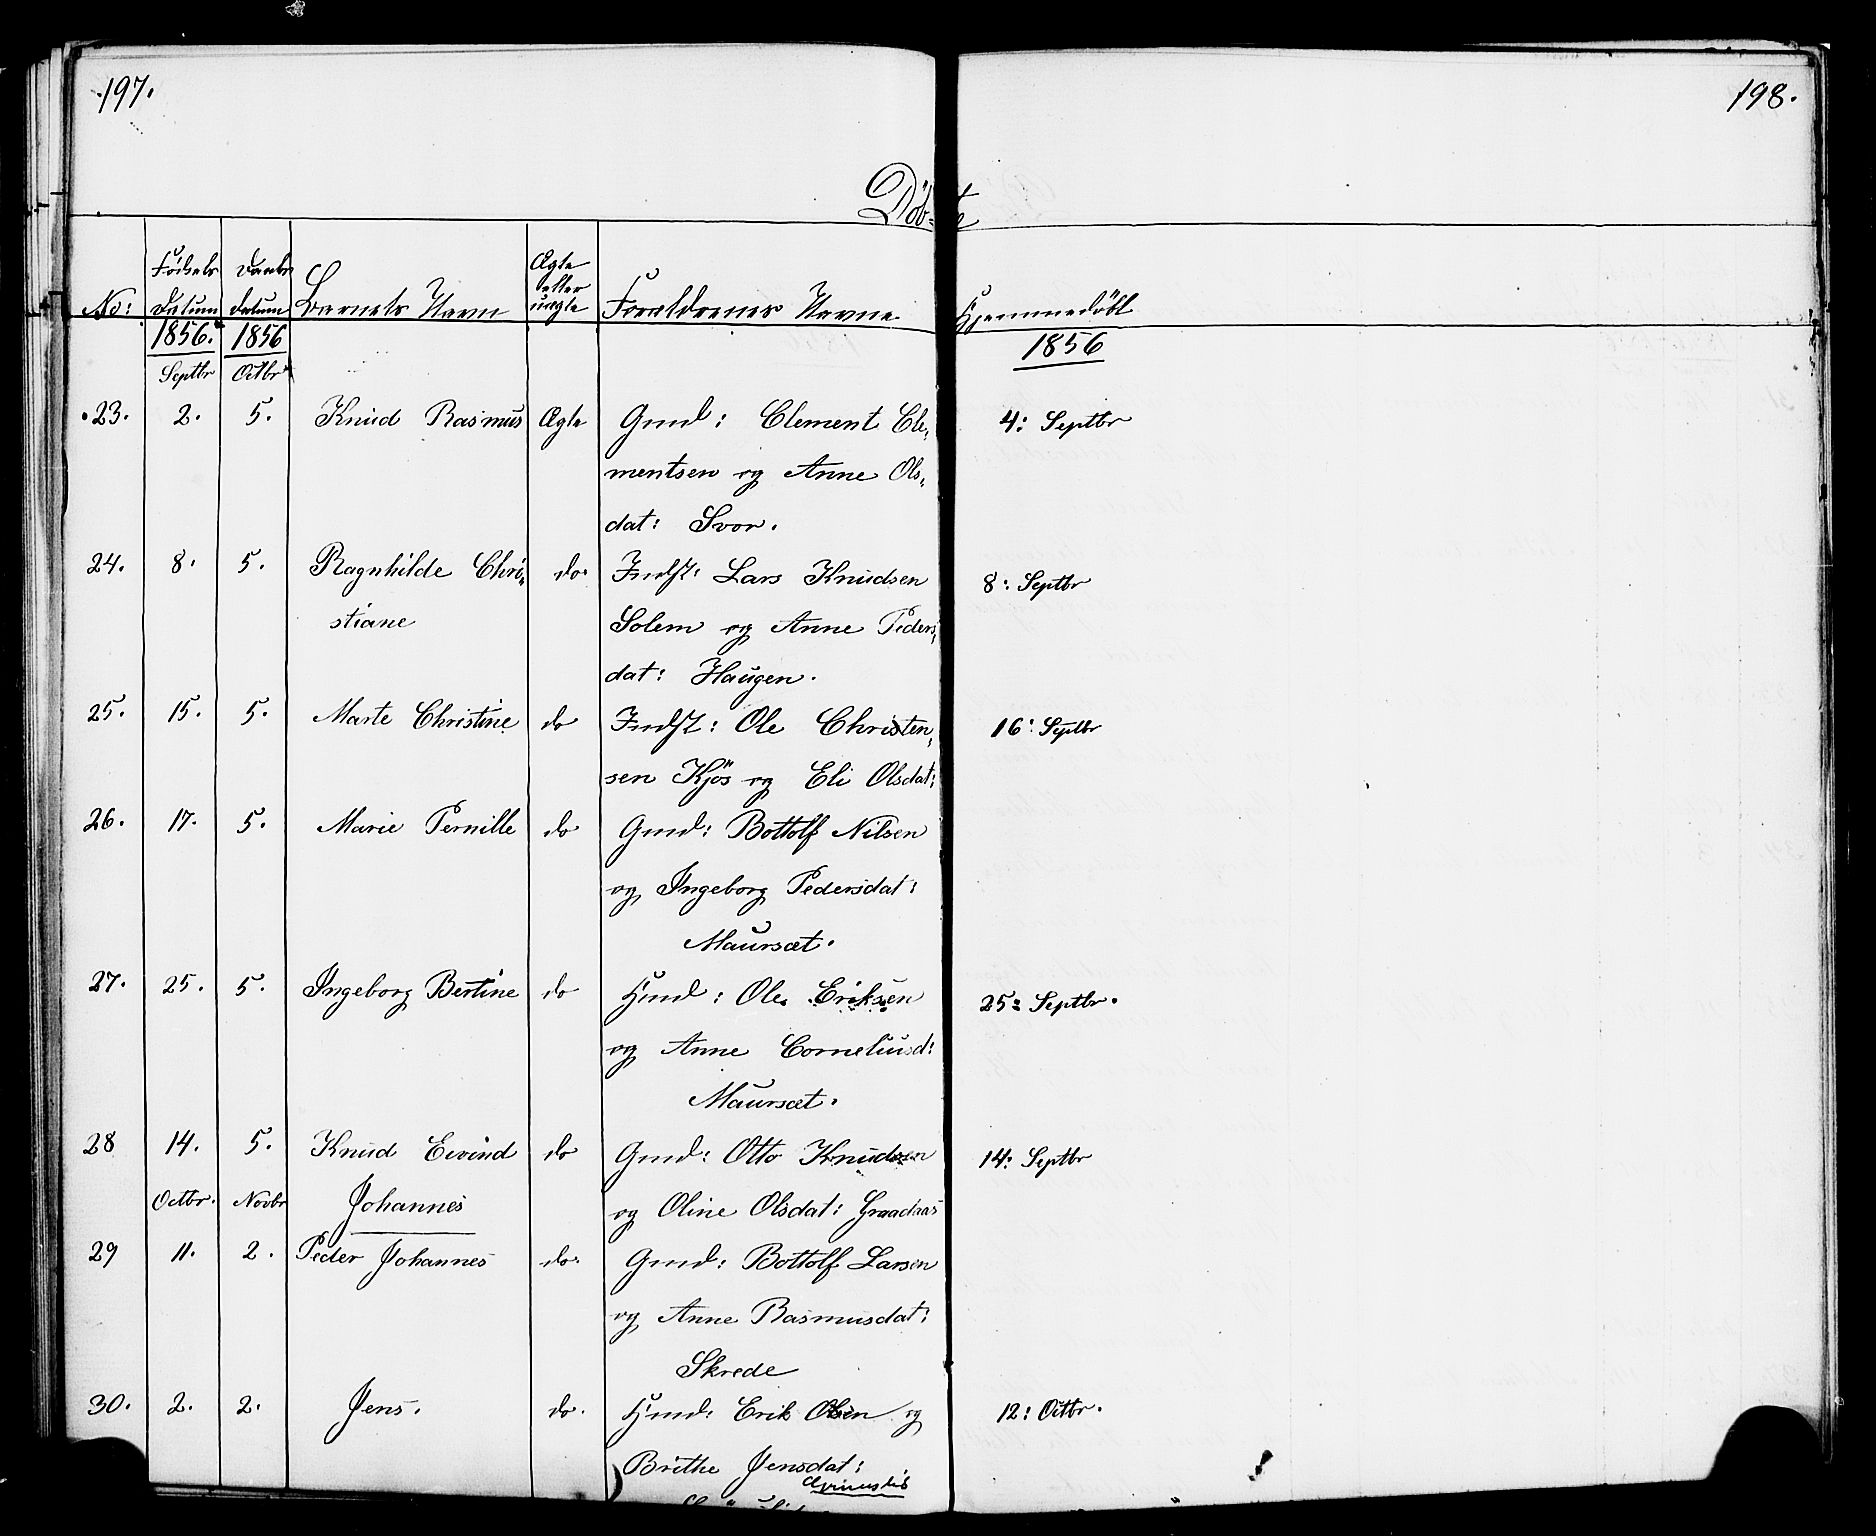 197.
198.
Döbte
No:
Födsels Datum
Daabs datum
Barnets Navn
Ægte eller uægte
Forældrenes Navne
Hjemmedöbt
1856. 1856 1856
Septbr Octbr
23. 2. 5. Knud Rasmus Ægte Gmd: Clement Cle- 4: Septbr
mentsen og Anne Ols-
dat: Svor.
24. 8. 5. Ragnhilde Chri- do. Indst: Lars Knudsen 8: Septbr
stiane Solem og Anne Peders-
dat: Haugen.
25. 15. 5. Marte Christine do Indst: Ole Christen- 16: Septbr
sen Kjös og Eli Olsdat:
26. 17. 5. Marie Pernille do Gmd: Bottolf Nilsen
og Ingeborg Pedersdat:
Maursæt.
27. 25. 5. Ingeborg Bertine do Hmd: Ole Eriksen 25: Septbr.
og Anne Corneliusd:
Maursæt.
28 14. 5. Knud Eivind do Gmd: Otto Knudsen 14: Septbr
Octbr. Novbr Johannes og Oline Olsdat: Graadaas
29 11. 2. Peder Johannes do. Gmd: Bottolf Larsen
og Anne Rasmusdat:
Skrede
30. 2. 2. Jens. do. Hmd: Erik Olsen og 12: Octbr.
Brithe Jensdat: